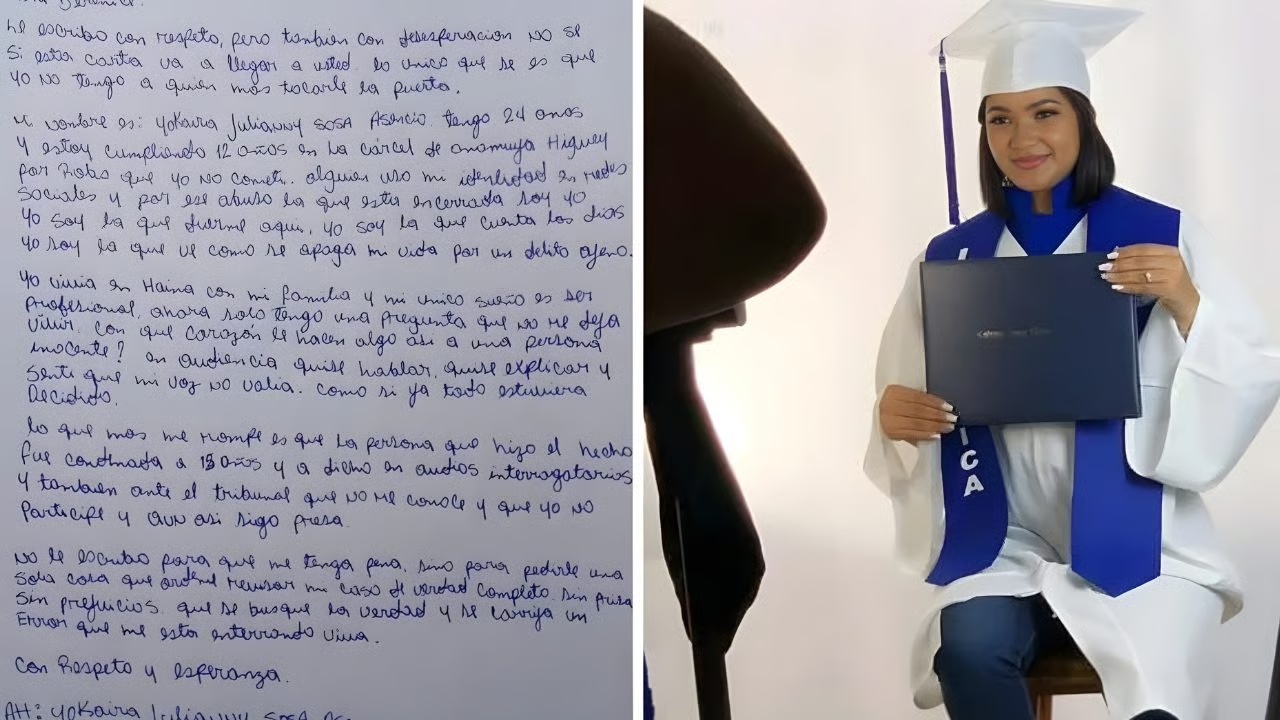 Le escribo con respeto, pero tambien con desesperacion no se
Si esta carta va a llegar a usted. lo unico que se es que
yo no tengo a quien mas tocarle la puerta.
Mi nombre es: Yokaira Julianny Sosa Asencio. tengo 24 anos
Y estoy cumpliendo 12 años en la cárcel de anamuya Higuey
por Robos que yo no cometi. alguien uso mi identidad en redes
sociales y por ese abuso la que esta encerrada soy yo
Yo soy la que duerme aqui, yo soy la que cuenta los dias
Yo soy la que ve como se apaga mi vida por un delito ajeno.
Yo vivia en Haina con mi familia y mi unico sueño es ser
Profesional, ahora solo tengo una pregunta que no me deja
vivir. con que corazón le hacen algo asi a una persona
inocente? en audiencia quise hablar, quise explicar y
Senti que mi voz no valia. como si ya todo estuviera
Decidido.
lo que mas me rompe es que la persona que hizo el hecho
fue condenada a años y a dicho en audios interrogatarios
Y tambien ante el tribunal que no me conoce y que yo no
Participe y aun asi sigo presa.
No le escribo para que me tenga pena, sino para pedirle una
sola cosa que ordene revisar mi caso de verdad completo. sin prisa
Sin prejuicios. que se busque la verdad y se corrija un
Error que me esta enterrando viva.
Con Respeto y esperanza.
Att: Yokaira Julianny Sosa
ICA